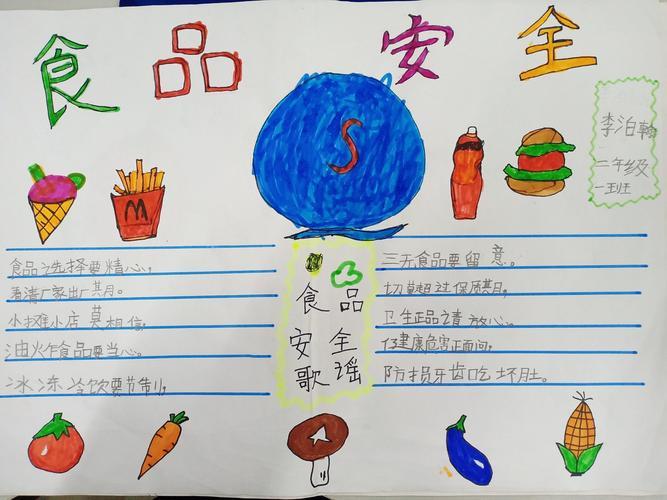 食品安全
S
李泊翰
二年级
一班
M
食品选择要精心,
看清厂家出厂其月。
小摊小店莫相信,
油炸食品要当心。
冰冻冷饮要节制,
食品
安全
歌谣
三无食品要留意。
切莫超过保质其日,
卫生正品之请放心。
仔建康危害正面问,
防损牙齿吃坏肚。